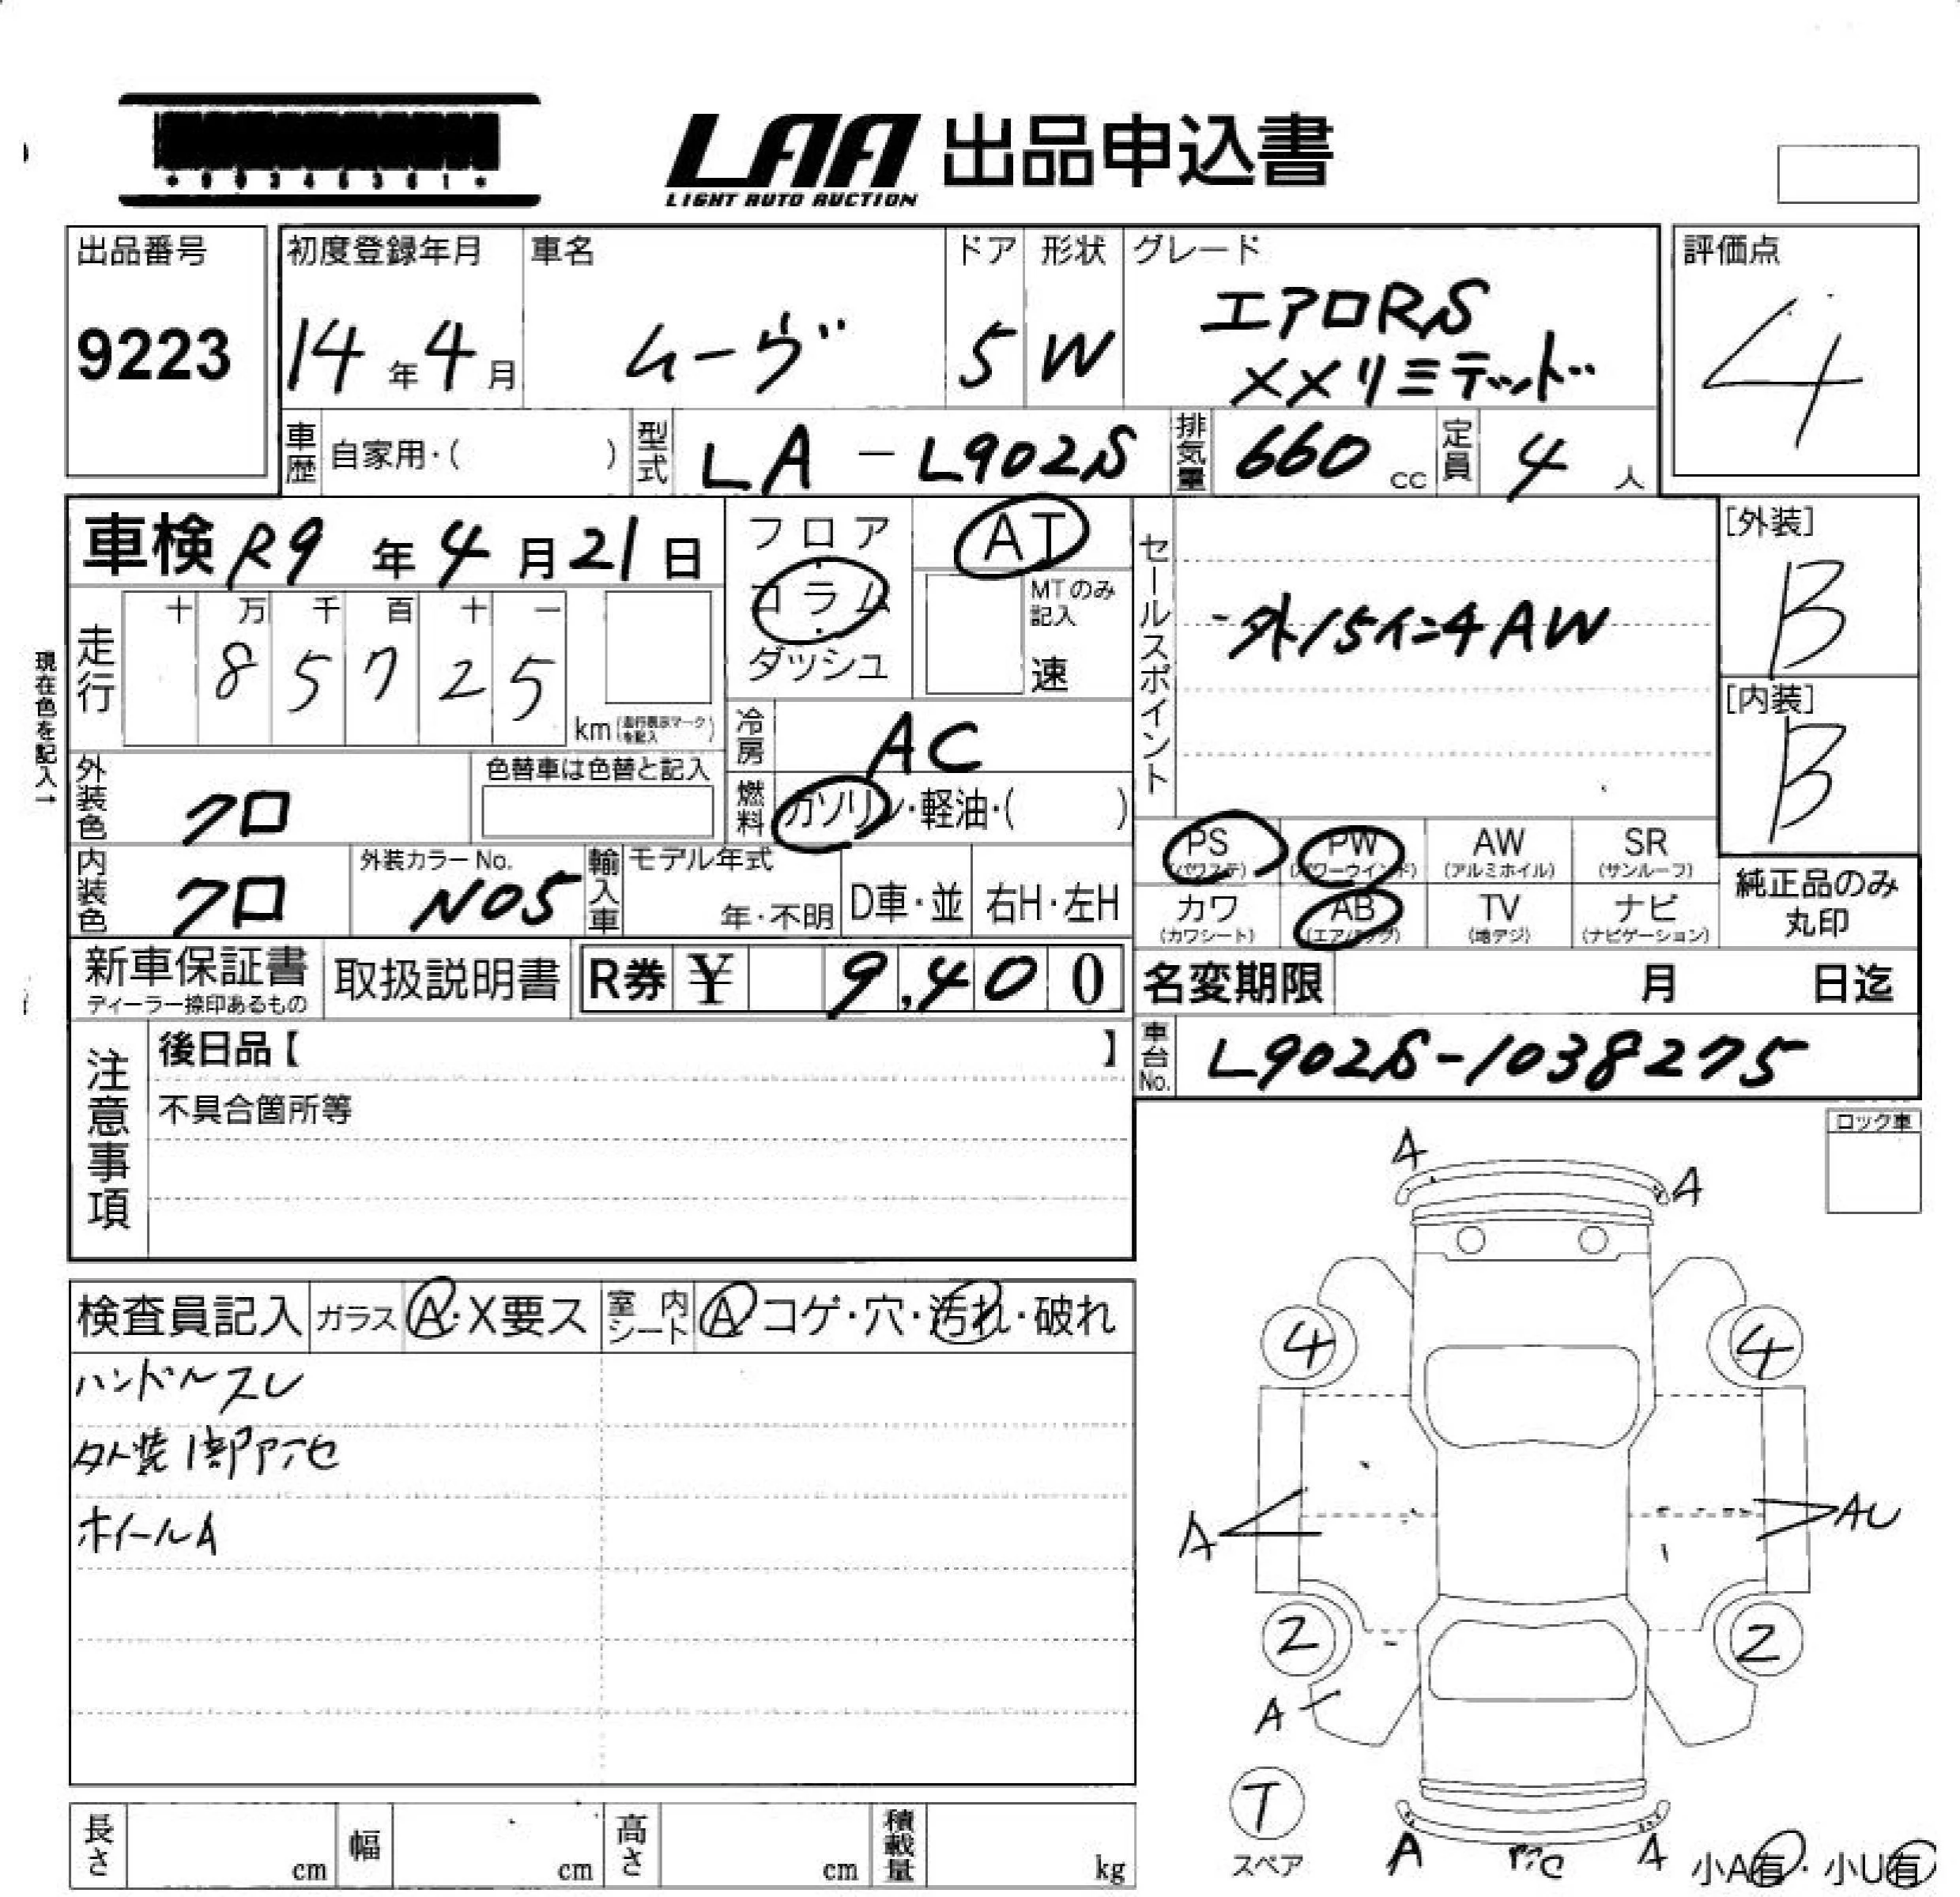 LAA 出品申込書
LIGHT AUTO AUCTION
出品番号
9223
初度登録年月
14年4月
車名
ムーヴ
ドア
5
形状
W
グレード
エアロRS
XXリミテッド
評価点
4
車歴 自家用・( )
型式 LA-L902S
排気量 660 cc
定員 4 人
車検 R9 年 4 月 21 日
フロア
コラム
ダッシュ
AT
MTのみ
記入
速
セールスポイント
外15インチAW
[外装]
B
[内装]
B
現在色を記入→
走行
十 万 千 百 十 一
8 5 7 2 5
km (走行表示マークを記入)
冷房 AC
燃料 ガソリン・軽油・( )
外装色 クロ
色替車は色替と記入
内装色 クロ
外装カラーNo.
N05
輸入車
モデル年式
年・不明
D車・並
右H・左H
PS
(パワステ)
PW
(パワーウインド)
AW
(アルミホイル)
SR
(サンルーフ)
カワ
(カワシート)
AB
(エアバッグ)
TV
(地デジ)
ナビ
(ナビゲーション)
純正品のみ
丸印
新車保証書
ディーラー捺印あるもの
取扱説明書
R券 ¥ 9,400
名変期限 月 日迄
車台No. L902S-1038275
注意事項
後日品【 】
不具合箇所等
ロック車
検査員記入
ガラス A・X要ス
室内シート A コゲ・穴・汚れ・破れ
ハンドルスレ
外装1部アセ
ホイールA
A
A
4
4
A
AU
2
2
A
T
スペア
A
A
小A有・小U有
長さ cm
幅 cm
高さ cm
積載量 kg